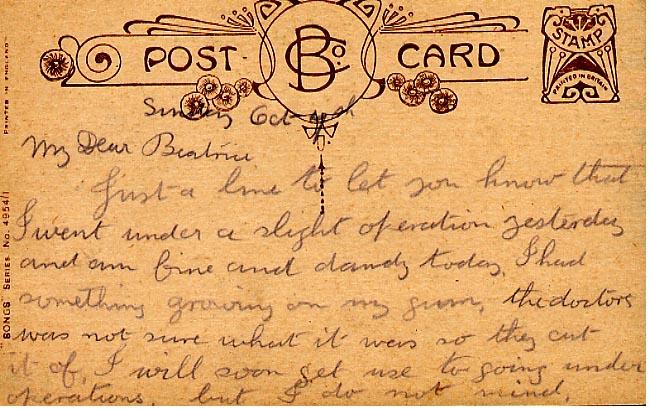 POST CARD
BCo.
STAMP
PRINTED IN BRITAIN
PRINTED IN ENGLAND
"SONGS" SERIES No. 4954/1
Sunday Oct 4th
My Dear Beatrice
Just a line to let you know that
I went under a slight operation yesterday
and am fine and dandy today, I had
something growing on my gum, the doctors
was not sure what it was so they cut
it of, I will soon get use to going under
operations, but I do not mind,